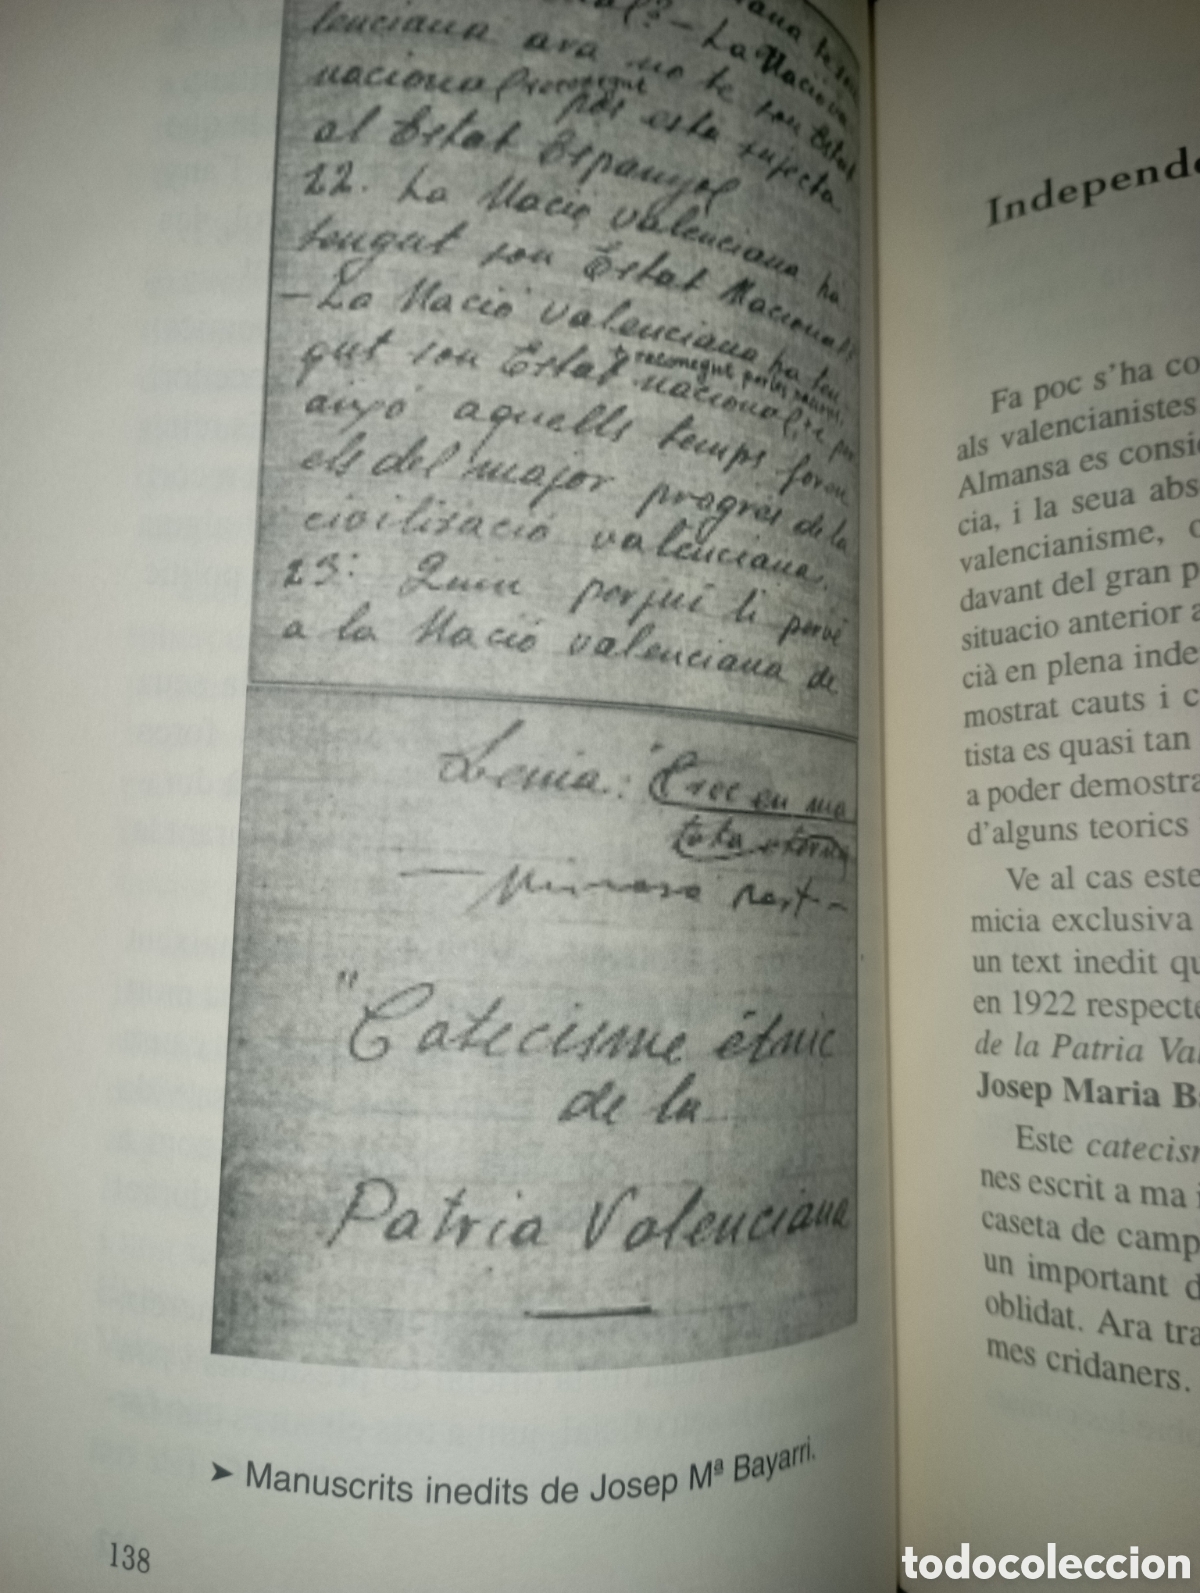 lenciana ara no te son Estat
nacional reconegut
pos esta sujecta
al Estat Espanyol
22. La Nació valenciana ha
tengut son Estat Nacional?
– La Nació valenciana ha ten-
gut son Estat nacional, e per
reconegut per les nacions,
aixó aquells temps foren
els del major progrés de la
civilisació valenciana.
23: Quin perjuí li pervé
a la Nació valenciana de
Lema: "Crec en ma
terra
"Catecisme étnic
de la
Patria Valenciana
➤ Manuscrits inedits de Josep Mª Bayarri.
138
Independe
Fa poc s'ha co
als valencianistes
Almansa es consi
cia, i la seua abs
valencianisme, c
davant del gran p
situacio anterior a
cià en plena inde
mostrat cauts i c
tista es quasi tan
a poder demostra
d'alguns teorics
Ve al cas este
micia exclusiva
un text inedit qu
en 1922 respecte
de la Patria Val
Josep Maria B
Este catecism
nes escrit a ma i
caseta de camp
un important d
oblidat. Ara tra
mes cridaners.
todocoleccion